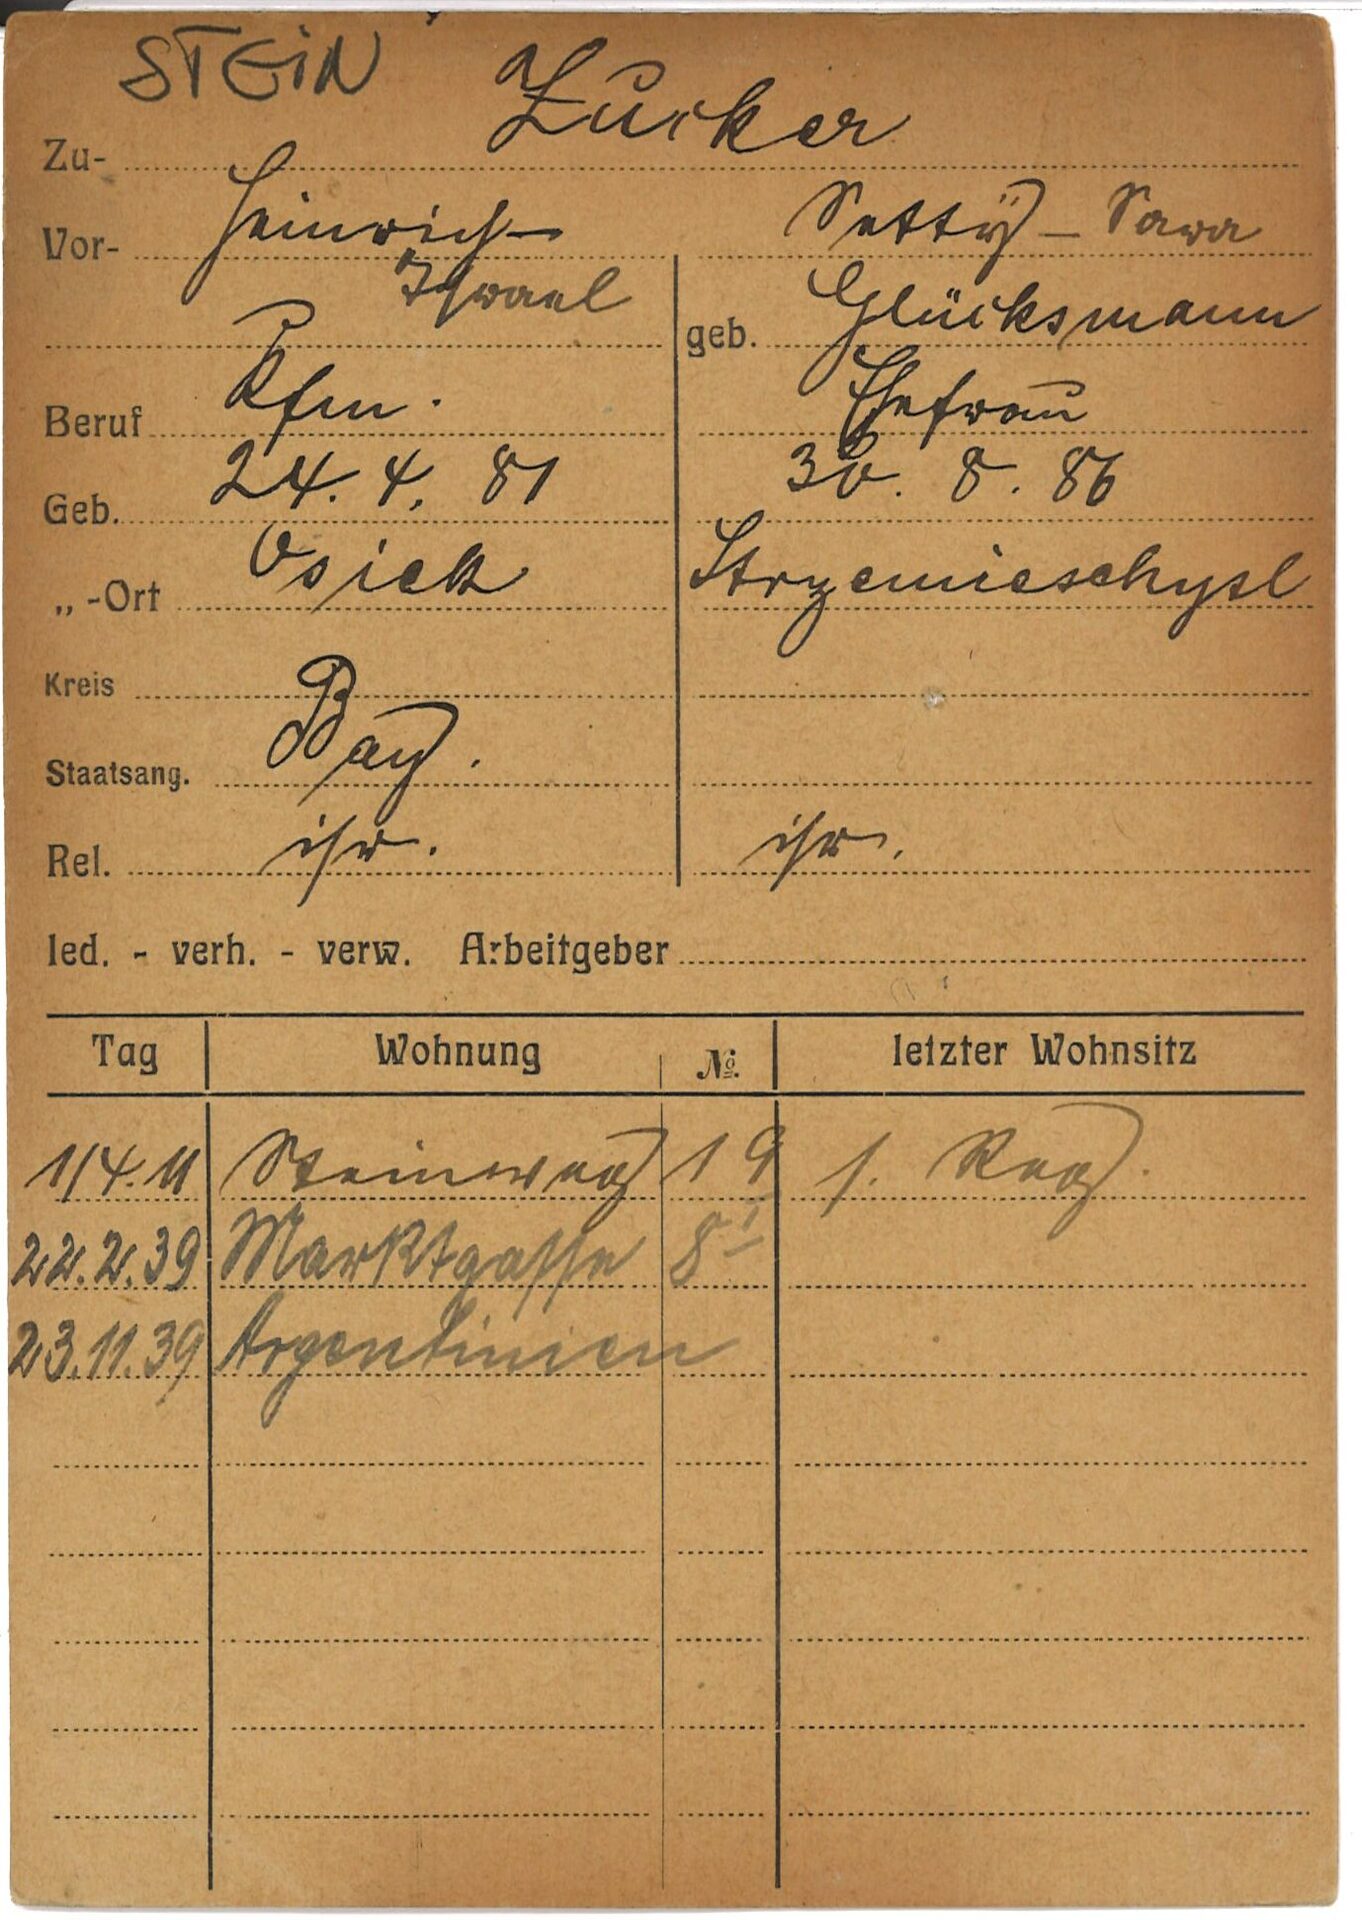 STEIN
Zu- Zucker
Vor- Heinrich- Setty - Sara
Israel
geb. Glücksmann
Beruf Kfm. Ehefrau
Geb. 24. 4. 81 30. 8. 86
„ -Ort Osiek
Kreis
Staatsang. Bay.
Rel. isr. isr.
led. - verh. - verw. Arbeitgeber
Tag Wohnung No. letzter Wohnsitz
1/4. 11 Steinweg 19 s. Reg.
22.2.39 Marktgasse 8 I
23.11.39 Argentinien